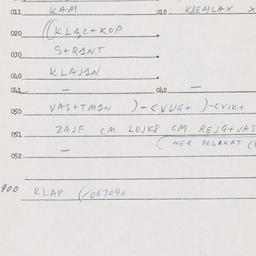 011 KAM 012 KREMLAX
020 (KLACK+KOP
030 S+RANT
040 KLAJAN
041 — 042 —
050 VAS+TMAN )-(VUG+ )-(VIK+
051 ZAJF CM LOJKS CM REJG+VAS
(MER DELAKAT
052 —
900 KLAP (/067090